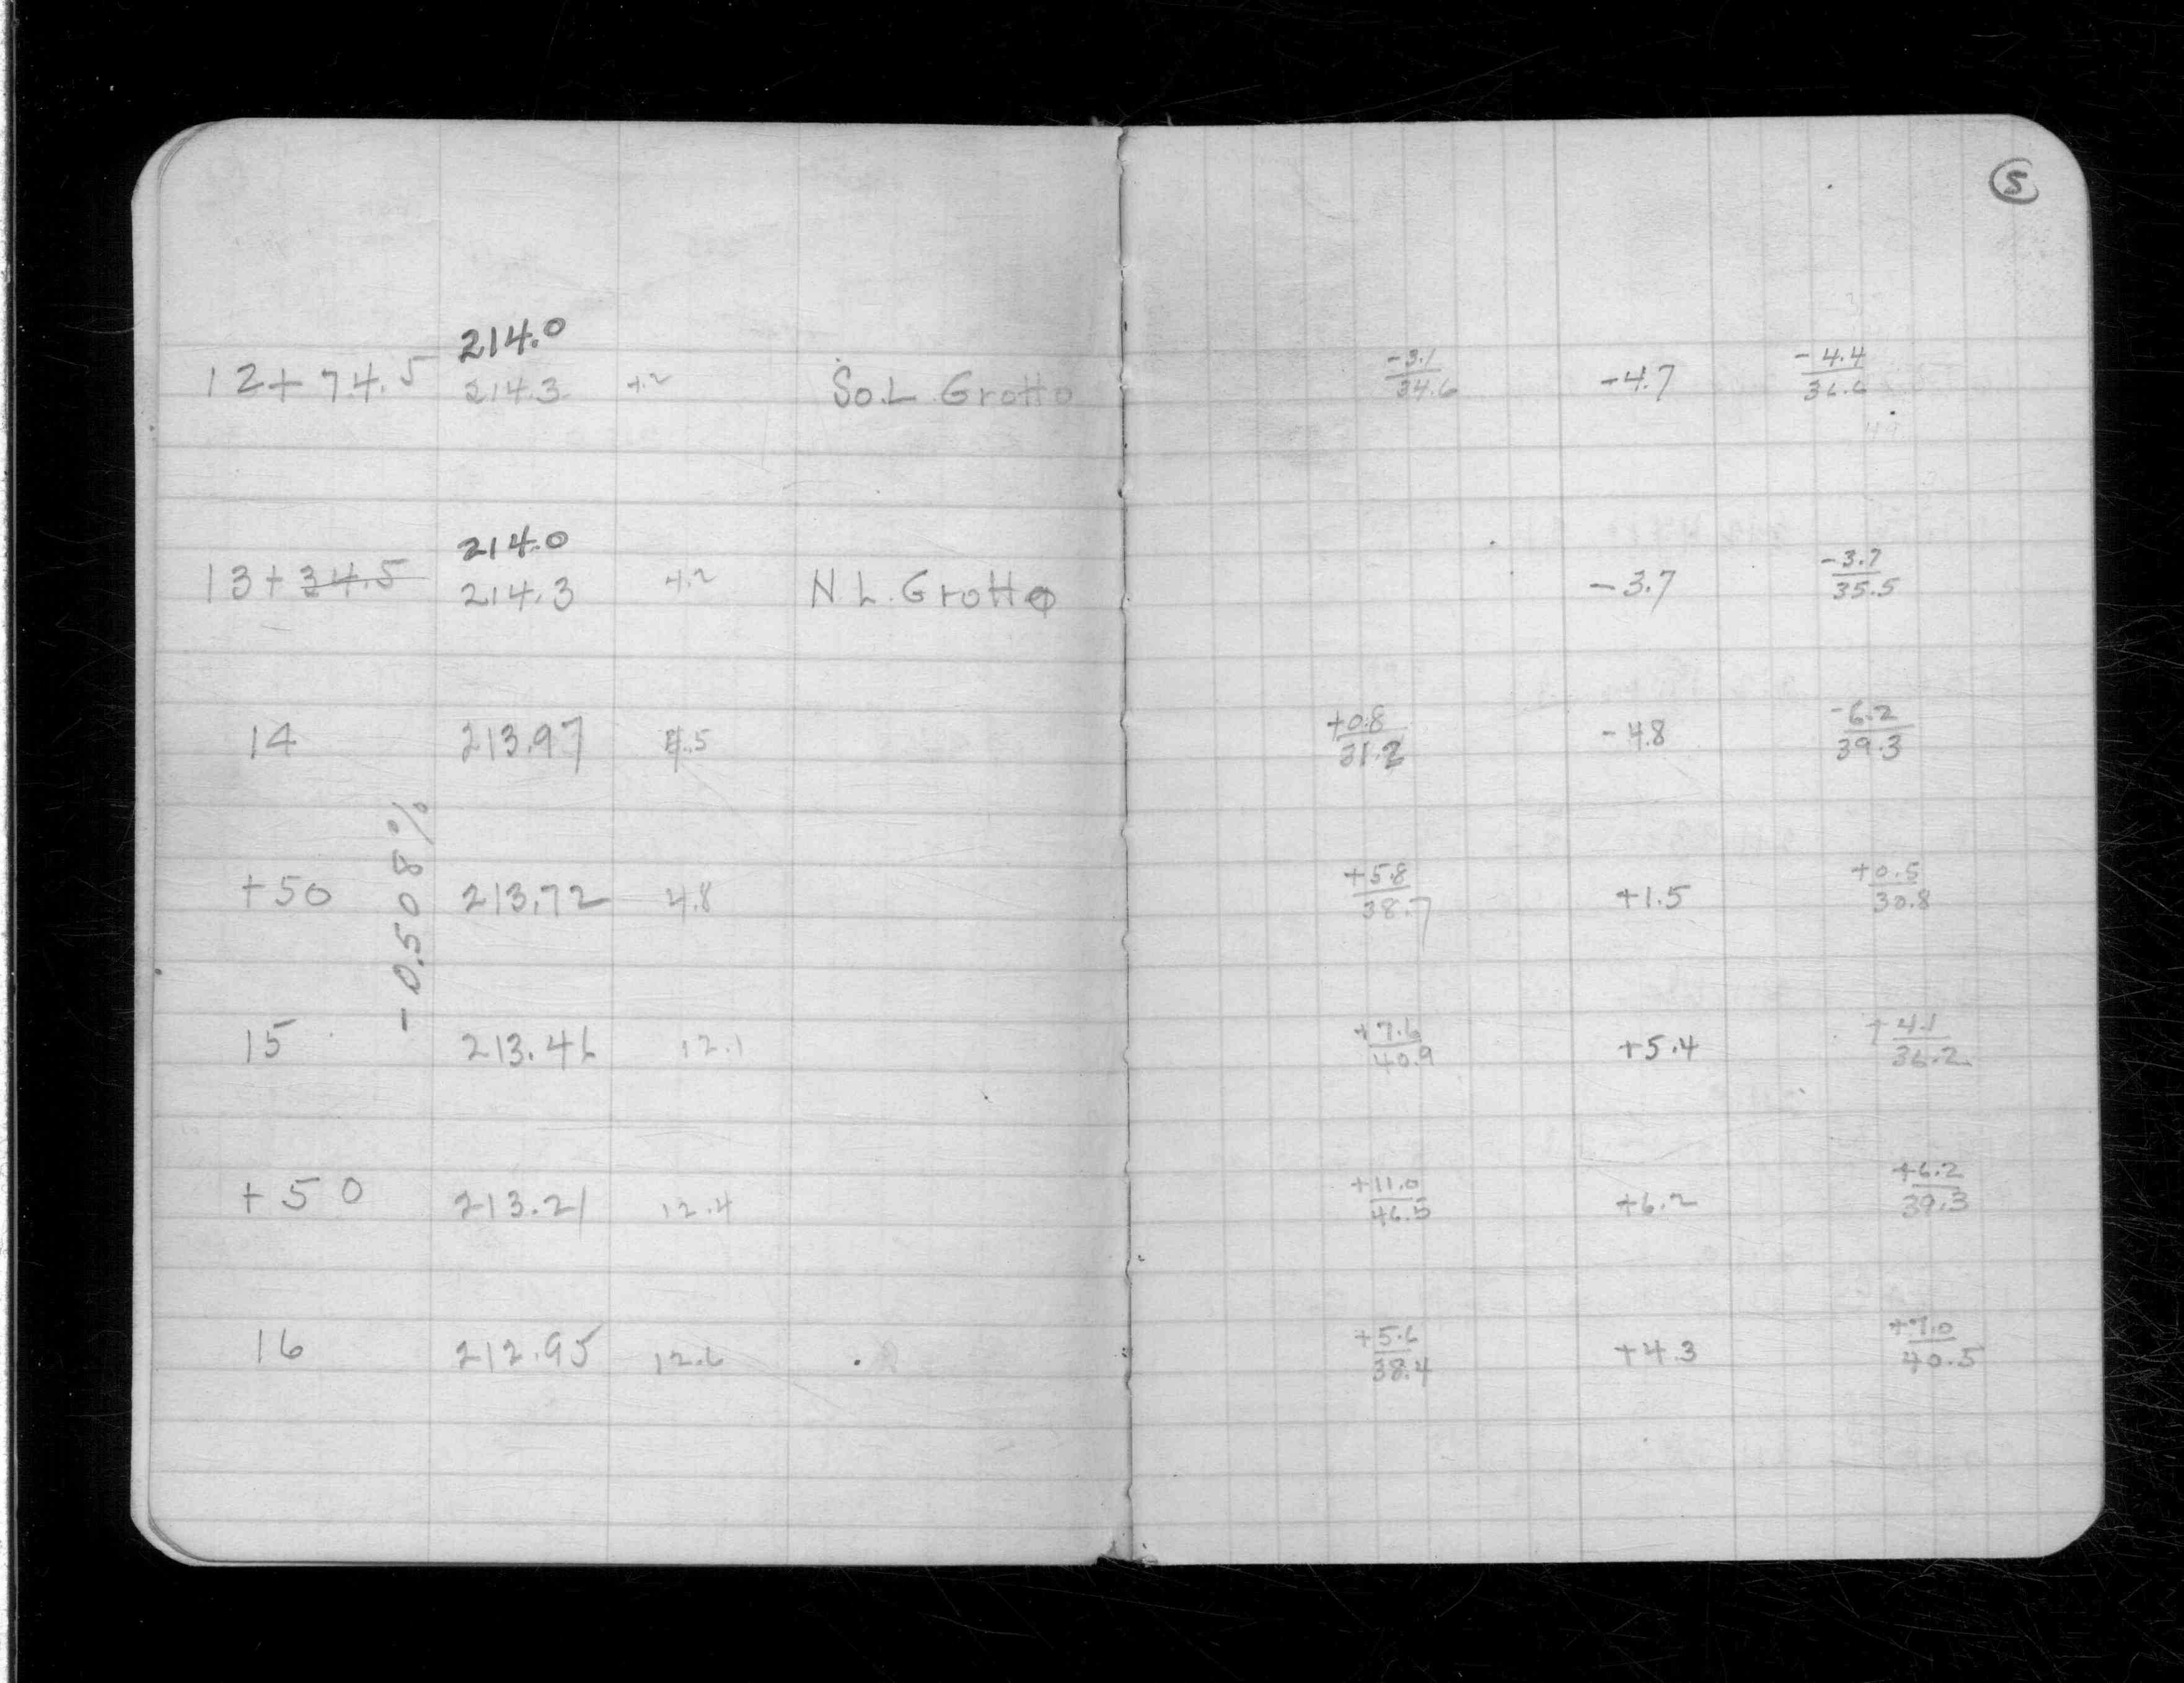 5
214.0
12+74.5 214.3 4.2 So.L Grotto -3.1/34.6 -4.7 -4.4/36.6
214.0
13+34.5 214.3 4.2 N.L. Grotto -3.7 -3.7/35.5
14 213.97 4.5 +0.8/31.2 -4.8 -6.2/39.3
-0.508%
+50 213.72 4.8 +5.8/38.7 +1.5 +0.5/30.8
15 213.46 12.1 +7.6/40.9 +5.4 +4.1/36.2
+50 213.21 12.4 +11.0/46.5 +6.2 +6.2/39.3
16 212.95 12.6 +5.6/38.4 +4.3 +7.0/40.5